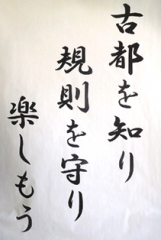 古都を知り
規則を守り
楽しもう